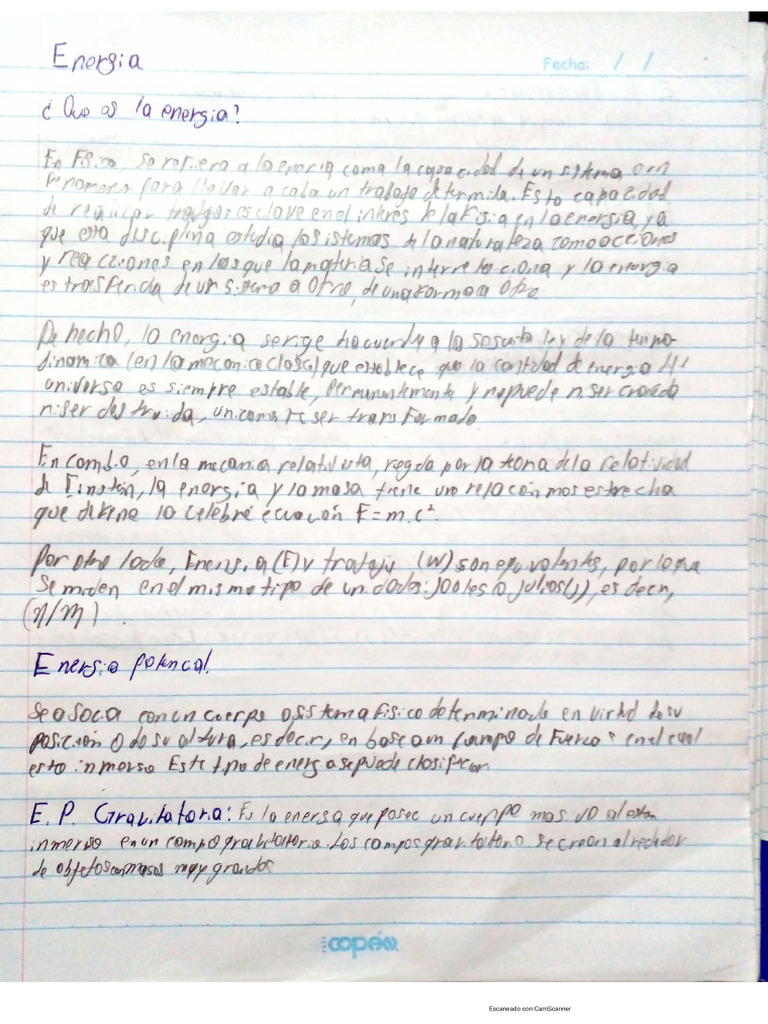 Energia
Fecha: / /
¿Que es la energia?
En Fisica, se refiera a la energia como la capacidad de un sistema o en
Fenomeno para llevar a cabo un trabajo determila. Esta capacidad
de realizar trabajos es clave en el interés de la Fisia en la energia, ya
que esta disciplina estudia los sistemas de la naturaleza como acciones
y reacciones en los que la materia se interrelaciona y la energia
es trasferida de un sistema a otro, de una forma a otra
De hecho, la energia se rige de acuerdo a la segunta ley de la termo-
dinamica (en la mecanica clasica) que establece que la cantidad de energia del
universo es siempre estable, permanentemente y no puede ni ser creada
ni ser destruida, unicamente ser transformada
En cambio, en la mecania relativista, regida por la teoria de la relatividad
de Einstein, la energía y la masa tiene una relación mas estrecha
que define la celebre ecuación E=m.c²
Por otro lado, Energia (E) y trabajo (W) son equivalentes, por lo que
se miden en el mismo tipo de unidades: Joules o julios (J), es decir,
(N/M)
Energia potencial
Se asocia con un cuerpo o sistema Fisico determinado en virtud de su
posición o de su altura, es decir, en base a un campo de Fuerzas en el cual
esta inmerso Este tipo de energia se puede clasificar
E. P. Gravitatoria: Es la energia que posee un cuerpo masivo al estar
inmerso en un campo gravitatorio. Los campos gravitatorio se crean alrededor
de objetos con masas muy grandes
copán
Escaneado con CamScanner